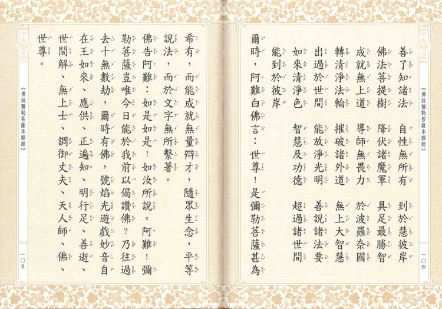 善了知諸法　自性無所有　到於慧彼岸
佛法菩提樹　降伏諸魔軍　具足最勝智
成就無上道　導師無畏力　於波羅奈國
轉清淨法輪　摧破諸外道　無上大智慧
出過於世間　能放淨光明　善說諸法要
如來清淨色　智慧及功德　超過諸世間
能到於彼岸
爾時，阿難白佛言：世尊！是彌勒菩薩甚為
一〇四
希有，而能成就無量辯才，隨眾生念，平等
說法，而於文字無所繫著。
佛告阿難：如是如是！如汝所說。阿難！彌
勒菩薩豈唯今日能於我前以偈讚佛？乃往過
去十無數劫，爾時有佛，號焰光遊戲妙音自
在王如來、應供、正遍知、明行足、善逝、
世間解、無上士、調御丈夫、天人師、佛、
世尊。
一〇五